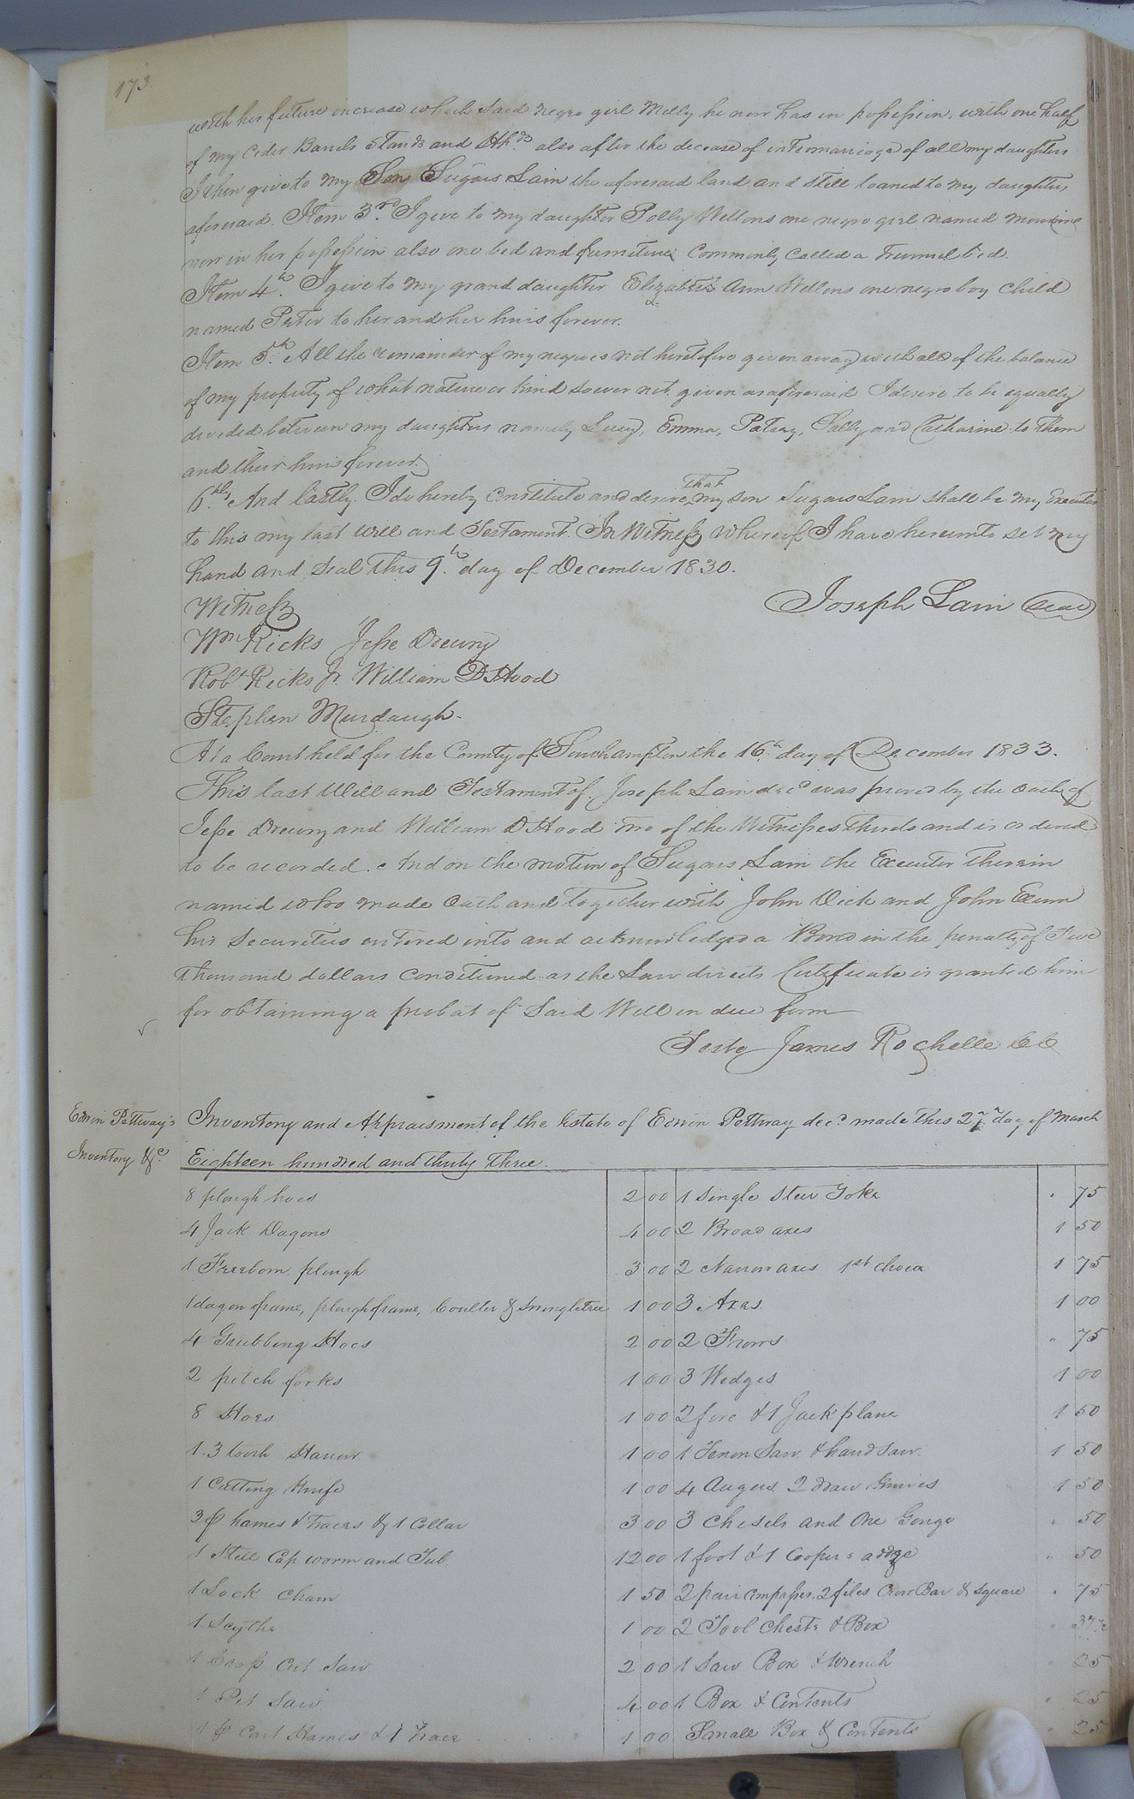 173
with her future increase which said negro girl Milly he now has in possession, with one half
of my Cider Barrels Stands and Hhds also after the decease of intermarriage of all my daughters
I then give to my Son Sugars Lain the aforesaid land and Still loaned to my daughters
aforesaid. Item 3rd. I give to my daughter Polly Wellons one negro girl named
now in her possession also one bed and furniture Commonly Called a Trunnel bed.
Item 4th. I give to my grand daughter Elizabeth Ann Wellons one negro boy Child
named Peter to her and her heirs forever.
Item 5th. All the remainder of my negroes not heretofore given away with all of the balance
of my property of what nature or kind soever not given as aforesaid I desire to be equally
divided between my daughters namely Lucy, Emma, Patsey, Sally, and Catharine to them
and their heirs forever.
6thly. And lastly. I do hereby Constitute and desire that my son Sugars Lain shall be my Executor
to this my last will and Testament. In Witness whereof I have hereunto set my
hand and Seal this 9th day of December 1830.
Witness
Joseph Lain (Seal)
Wm Ricks Jesse Drewry
Robt Ricks Jr. William D Hood
Stephen Murdaugh.
At a Court held for the County of Southampton the 16th day of December 1833.
This last Will and Testament of Joseph Lain decd was proved by the oath of
Jesse Drewry and William D Hood two of the Witnesses thereto and is ordered
to be recorded. And on the motion of Sugars Lain the Executor therein
named who made Oath and together with John Vick and John Exum
his Securities entered into and acknowledged a Bond in the penalty of Five
thousand dollars Conditioned as the Law directs Certificate is granted him
for obtaining a probat of Said Will in due form
Teste James Rochelle CC
Edwin Pettway's
Inventory &c.
Inventory and Appraisment of the Estate of Edwin Pettway decd. made this 27th day of March
Eighteen hundred and thirty three.
8 plough hoes 2 00 1 Single Steer Yoke . 75
4 Jack Dagons 4 00 2 Broad axes 1 50
1 Freeborn plough 3 00 2 Narrow axes 1st choice 1 75
1 dagon frame, plough frame, Coulter & Swingletree 1 00 3 Axes 1 00
4 Grubbing Hoes 2 00 2 Frows . 75
2 pitch forks 1 00 3 Wedges 1 00
8 Hoes 1 00 2 fore & 1 Jack plane 1 50
1. 3 tooth Harrow 1 00 1 Tenon Saw & hand saw. 1 50
1 Cutting Knife 1 00 4 Augers 2 draw Knives 1 50
3 p hames & Traces & 1 Collar 3 00 3 Chisels and One Gouge . 50
1 Still Cap worm and Tub 12 00 1 foot & 1 Coopers adze . 50
1 Lock Chain 1 50 2 pair Compasses, 2 files Crow Bar & Square . 75
1 Scythe 1 00 2 Tool Chests & Box . 37 1/2
1 Cross Cut Saw 2 00 1 Saw Box & Wrench . 25
1 Pit Saw 4 00 1 Box & Contents . 25
1 p Cart Hames & 1 Trace 1 00 Small Box & Contents . 25